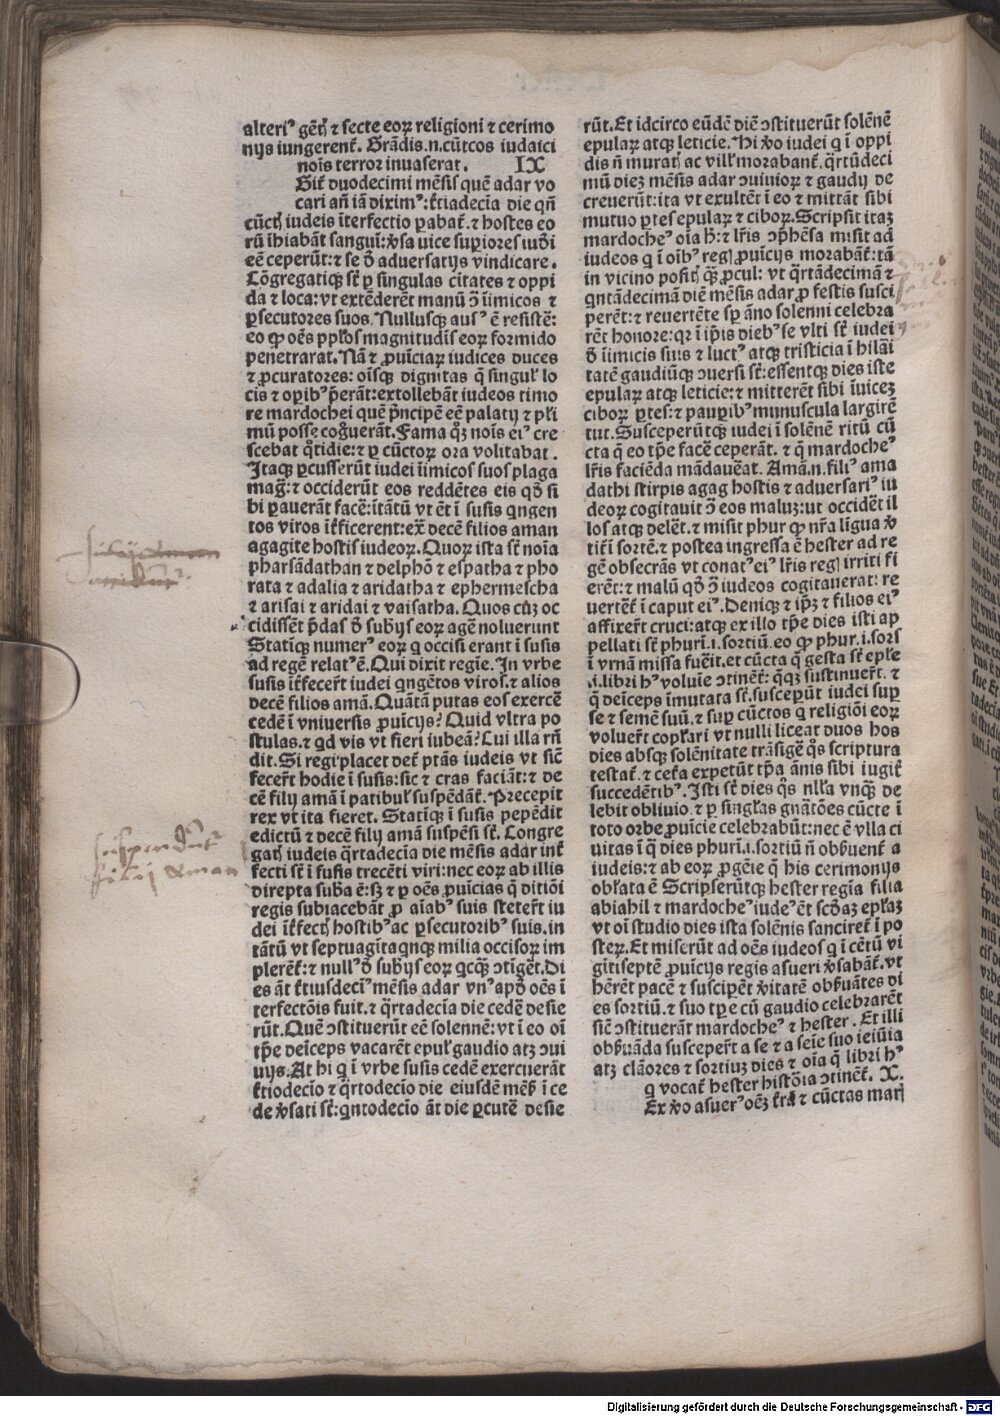 alteriꝰ gẽtꝭ ⁊ secte eoꝝ religioni ⁊ cerimo
nijs iungerent̃. Grãdis.n.cũtcos iudaici
nois terror inuaserat. IX
Git̃ duodecimi mẽsis quẽ adar vo
cari añ iã diximꝰ: t̃tiadecĩa die qñ
cũctꝭ iudeis ĩterfectio ꝑabat̃. ⁊ hostes eo
rũ ĩhiabãt sanguĩ: v̾sa uice suꝑiores iud̃i
eẽ ceperũt: ⁊ se d̾ aduersarijs vindicare.
Cõgregatiqꝫ st̃ ꝑ singulas citates ⁊ oppi
da ⁊ loca: vt extẽderẽt manũ ↄ̃ ĩimicos ⁊
ꝑsecutores suos. Nullusqꝫ ausꝰ ẽ resistẽ:
eo ꝙ oẽs ppl̃os magnitudĩs eoꝝ formido
penetrarat. Nã ⁊ ꝓuĩciaꝝ iudices duces
⁊ ꝓcuratores: oĩsqꝫ dignitas q̃ singul̃ lo
cis ⁊ oꝑibꝰ p̃erãt: extollebãt iudeos timo
re mardochei quẽ p̃ncipẽ eẽ palatij ⁊ pl̃i
mũ posse cog̃uerãt. Fama qꝫ noĩs eiꝰ cre
scebat q̃tidie: ⁊ ꝑ cũctoꝝ ora volitabat.
Itaqꝫ ꝑcusserũt iudei ĩimicos suos plaga
mag̃: ⁊ occiderũt eos reddẽtes eis qd̾ si
bi ꝑauerãt facẽ: ĩtãtũ vt ẽt ĩ susis qngen
tos viros ĩt̃ficerent: ex̃ decẽ filios aman
agagite hostis iudeoꝝ. Quoꝝ ista st̃ noĩa
pharsãdathan ⁊ delphõ ⁊ espatha ⁊ pho
rata ⁊ adalia ⁊ aridatha ⁊ ephermescha
⁊ arisai ⁊ aridai ⁊ vaisatha. Quos cũꝫ oc
cidissẽt p̃das d̾ subijs eoꝝ agẽ noluerunt
Statiqꝫ numerꝰ eoꝝ q occisi erant ĩ susis
ad regẽ relatꝰẽ. Qui dixit regie. In vrbe
susis ĩt̃fecer̃t iudei qngẽtos viros. ⁊ alios
decẽ filios amã. Quãtã putas eos exercẽ
cedẽ ĩ vniuersis ꝓuĩcijs? Quid vltra po
stulas. ⁊ qd vis vt fieri iubeã? Cui illa rñ
dit. Si regi placet det̃ ptãs iudeis vt sic̃
fecer̃t hodie ĩ susis: sic ⁊ cras faciãt: ⁊ de
cẽ filij amã ĩ patibul̃ suspẽdãt̃. Precepit
rex vt ita fieret. Statiqꝫ ĩ susis pepẽdit
edictũ ⁊ decẽ filij amã suspẽsi st̃. Congre
gatꝭ iudeis q̃rtadecĩa die mẽsis adar int̃
fecti st̃ ĩ susis trecẽti viri: nec eoꝝ ab illis
direpta suba ẽ: sꝫ ⁊ ꝑ oẽs ꝓuĩcias q̃ ditiõi
regis subiacebãt ꝓ aĩabꝰ suis steter̃t iu
dei ĩt̃fectꝭ hostibꝰ ac ꝑsecutoribꝰ suis. in
tãtũ vt septuagĩta qnqꝫ milia occisoꝝ im
plerẽt̃: ⁊ nullꝰ d̾ subijs eoꝝ qcqꝫ̃ ↄtĩgẽt. Di
es ãt t̃tiusdecĩꝰ mẽsis adar vnꝰ apd̾ oẽs ĩ
terfectõis fuit. ⁊ q̃rtadecĩa die cedẽ desie
rũt. Quẽ ↄstituerũt eẽ solennẽ: vt ĩ eo oĩ
tp̃e deĩceps vacarẽt epul̃ gaudio atꝫ ↄui
uijs. At hi q ĩ vrbe susis cedẽ exercuerãt
t̃tiodecĩo ⁊ q̃rtodecĩo die eiusdẽ mẽs̃ ĩ ce
de v̾sati st̃: qntodecĩo ãt die ꝑcutẽ desie
rũt. Et idcirco eũdẽ diẽ ↄstituerũt solẽnẽ
epulaꝝ atqꝫ leticie. Hi v̾o iudei q ĩ oppi
dis ñ muratꝭ ac vill̃ morabant̃. q̃rtũdeci
mũ dieꝫ mẽsis adar ↄuiuioꝝ ⁊ gaudij de
creuerũt: ita vt exultẽt ĩ eo ⁊ mittãt sibi
mutuo ꝑtes epulaꝝ ⁊ ciboꝝ. Scripsit itaꝫ
mardocheꝰ oĩa h̾: ⁊ lr̃is ↄp̃hẽsa misit ad
iudeos q ĩ oĩbꝰ regꝭ ꝓuĩcijs morabãt̃: tã
in vicino positꝭ qꝫ̃ ꝓcul: vt q̃rtãdecimã ⁊
qntãdecimã diẽ mẽsis adar ꝓ festis susci
perẽt: ⁊ reuertẽte sꝑ ãno solenni celebra
rẽt honore: qꝛ ĩ ip̃is diebꝰ se vlti st̃ iudei
d̾ ĩimicis suis ⁊ luctꝰ atqꝫ tristicia ĩ hilãi
tatẽ gaudiũqꝫ ↄuersi st̃: essentqꝫ dies iste
epulaꝝ atqꝫ leticie: ⁊ mitterẽt sibi ĩuiceꝫ
ciboꝝ ꝑtes: ⁊ pauꝑibꝰ munuscula largirẽ
tur. Susceperũtqꝫ iudei ĩ solẽnẽ ritũ cũ
cta q̃ eo tp̃e facẽ ceperãt. ⁊ q̃ mardocheꝰ
lr̃is faciẽda mãdauẽat. Amã.n.filiꝰ ama
dathi stirpis agag hostis ⁊ aduersariꝰ iu
deoꝝ cogitauit ↄ̃ eos maluꝫ: ut occidẽt il
los atqꝫ delẽt. ⁊ misit phur qꝫ nr̃a lĩgua v̾
tit̃ ĩ sortẽ. ⁊ postea ingressa ẽ hester ad re
gẽ obsecrãs vt conatꝰ eiꝰ lr̃is regꝭ irriti fi
erẽt: ⁊ malũ qd̾ ↄ̃ iudeos cogitauerat: re
uertẽt̃ ĩ caput eiꝰ. Deniqꝫ ⁊ ip̃ꝫ ⁊ filios eiꝰ
affixer̃t cruci: atqꝫ ex illo tp̃e dies isti ap
pellati st̃ phurĩ.i.sortiũ. eo ꝙ phur.i.sors
ĩ vrnã missa fuẽit. et cũcta q̃ gesta st̃ eple
.i.libri hꝰ voluĩe ↄtinẽt̃: q̃qꝫ sustinuer̃t. ⁊
q̃ deĩceps ĩmutata st̃. susceꝑũt iudei suꝑ
se ⁊ semẽ suũ. ⁊ suꝑ cũctos q religiõi eoꝝ
voluer̃t copl̃ari vt nulli liceat duos hos
dies absqꝫ solẽnitate trãsigẽ qs scriptura
testat̃. ⁊ cet̃a expetũt tp̃a ãnis sibi iugit̃
succedẽtibꝰ. Isti st̃ dies qs nll̃a vnqꝫ̃ de
lebit obliuio. ⁊ ꝑ singl̃as gñatõẽs cũcte ĩ
toto orbe ꝓuĩcie celebrabũt: nec ẽ vlla ci
uitas ĩ q̃ dies phurĩ.i.sortiũ ñ obẽuent̃ a
iudeis: ⁊ ab eoꝝ ꝓgẽie q̃ his cerimonijs
obl̃ata ẽ Scripserũtqꝫ hester regĩa filia
abiahil ⁊ mardocheꝰ iudeꝰ ẽt scd̾aꝫ epl̃aꝫ
vt oĩ studio dies ista solẽnis sanciret̃ ĩ po
steꝝ. Et miserũt ad oẽs iudeos q ĩ cẽtũ vi
gĩtiseptẽ ꝓuĩcijs regis asueri v̾sabãt̃. vt
hẽrẽt pacẽ ⁊ susciꝑẽt v̾itatẽ obẽuãtes di
es sortiũ. ⁊ suo tꝑe cũ gaudio celebrarẽt
siẽ ↄstituerãt mardocheꝰ ⁊ hester. Et illi
obẽuãda susceper̃t a se ⁊ a seĩe suo ieiũia
atꝫ clãores ⁊ sortiuꝫ dies ⁊ oĩa q̃ libri hꝰ
q vocat̃ hester histõia ↄtinẽt̃. X.
Ex v̾o asuerꝰ oẽꝫ t̃rã ⁊ cũctas marꝭ
suspendunt̃
filij Aman
Digitalisierung gefördert durch die Deutsche Forschungsgemeinschaft - DFG